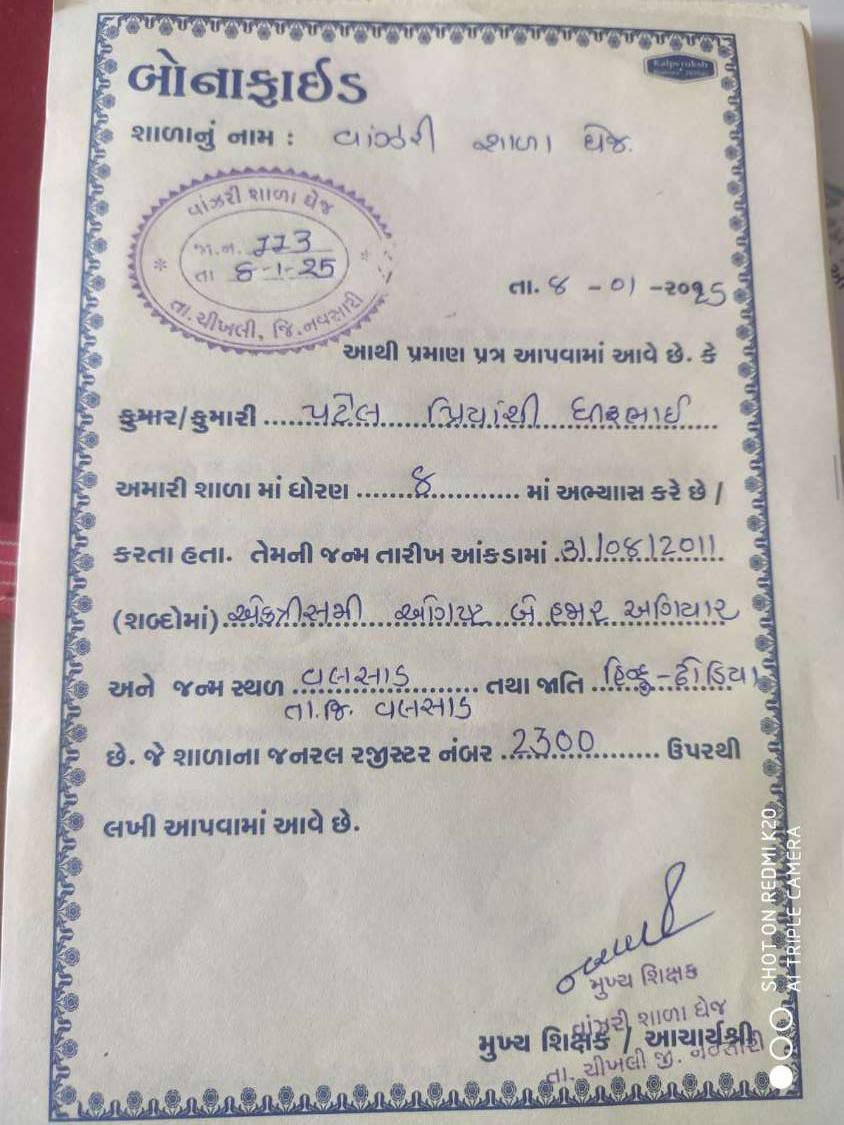 બોનાફાઈડ
Kalpvruksh
શાળાનું નામ : વાંઝરી શાળા ઘેજ.
વાંઝરી શાળા ઘેજ
જા.ન. 113
તા 8-1-25
તા.ચીખલી, જિ.નવસારી
તા. ૪ - ૦૧ - ૨૦૨૫
આથી પ્રમાણ પત્ર આપવામાં આવે છે. કે
કુમાર/કુમારી પટેલ પ્રિયાંશી ધીરૂભાઈ
અમારી શાળા માં ધોરણ ૪ માં અભ્યાાસ કરે છે /
કરતા હતા. તેમની જન્મ તારીખ આંકડામાં 31/08/2011
(શબ્દોમાં) એકત્રીસમી ઓગષ્ટ બે હજાર અગિયાર
અને જન્મ સ્થળ વલસાડ તથા જાતિ હિન્દુ-ઢોડિયા
તા.જિ. વલસાડ
છે. જે શાળાના જનરલ રજીસ્ટર નંબર 2300 ઉપરથી
લખી આપવામાં આવે છે.
મુખ્ય શિક્ષક
વાંઝરી શાળા ઘેજ
મુખ્ય શિક્ષક / આચાર્યશ્રી
તા. ચીખલી જી. નવસારી
SHOT ON REDMI K20
AI TRIPLE CAMERA